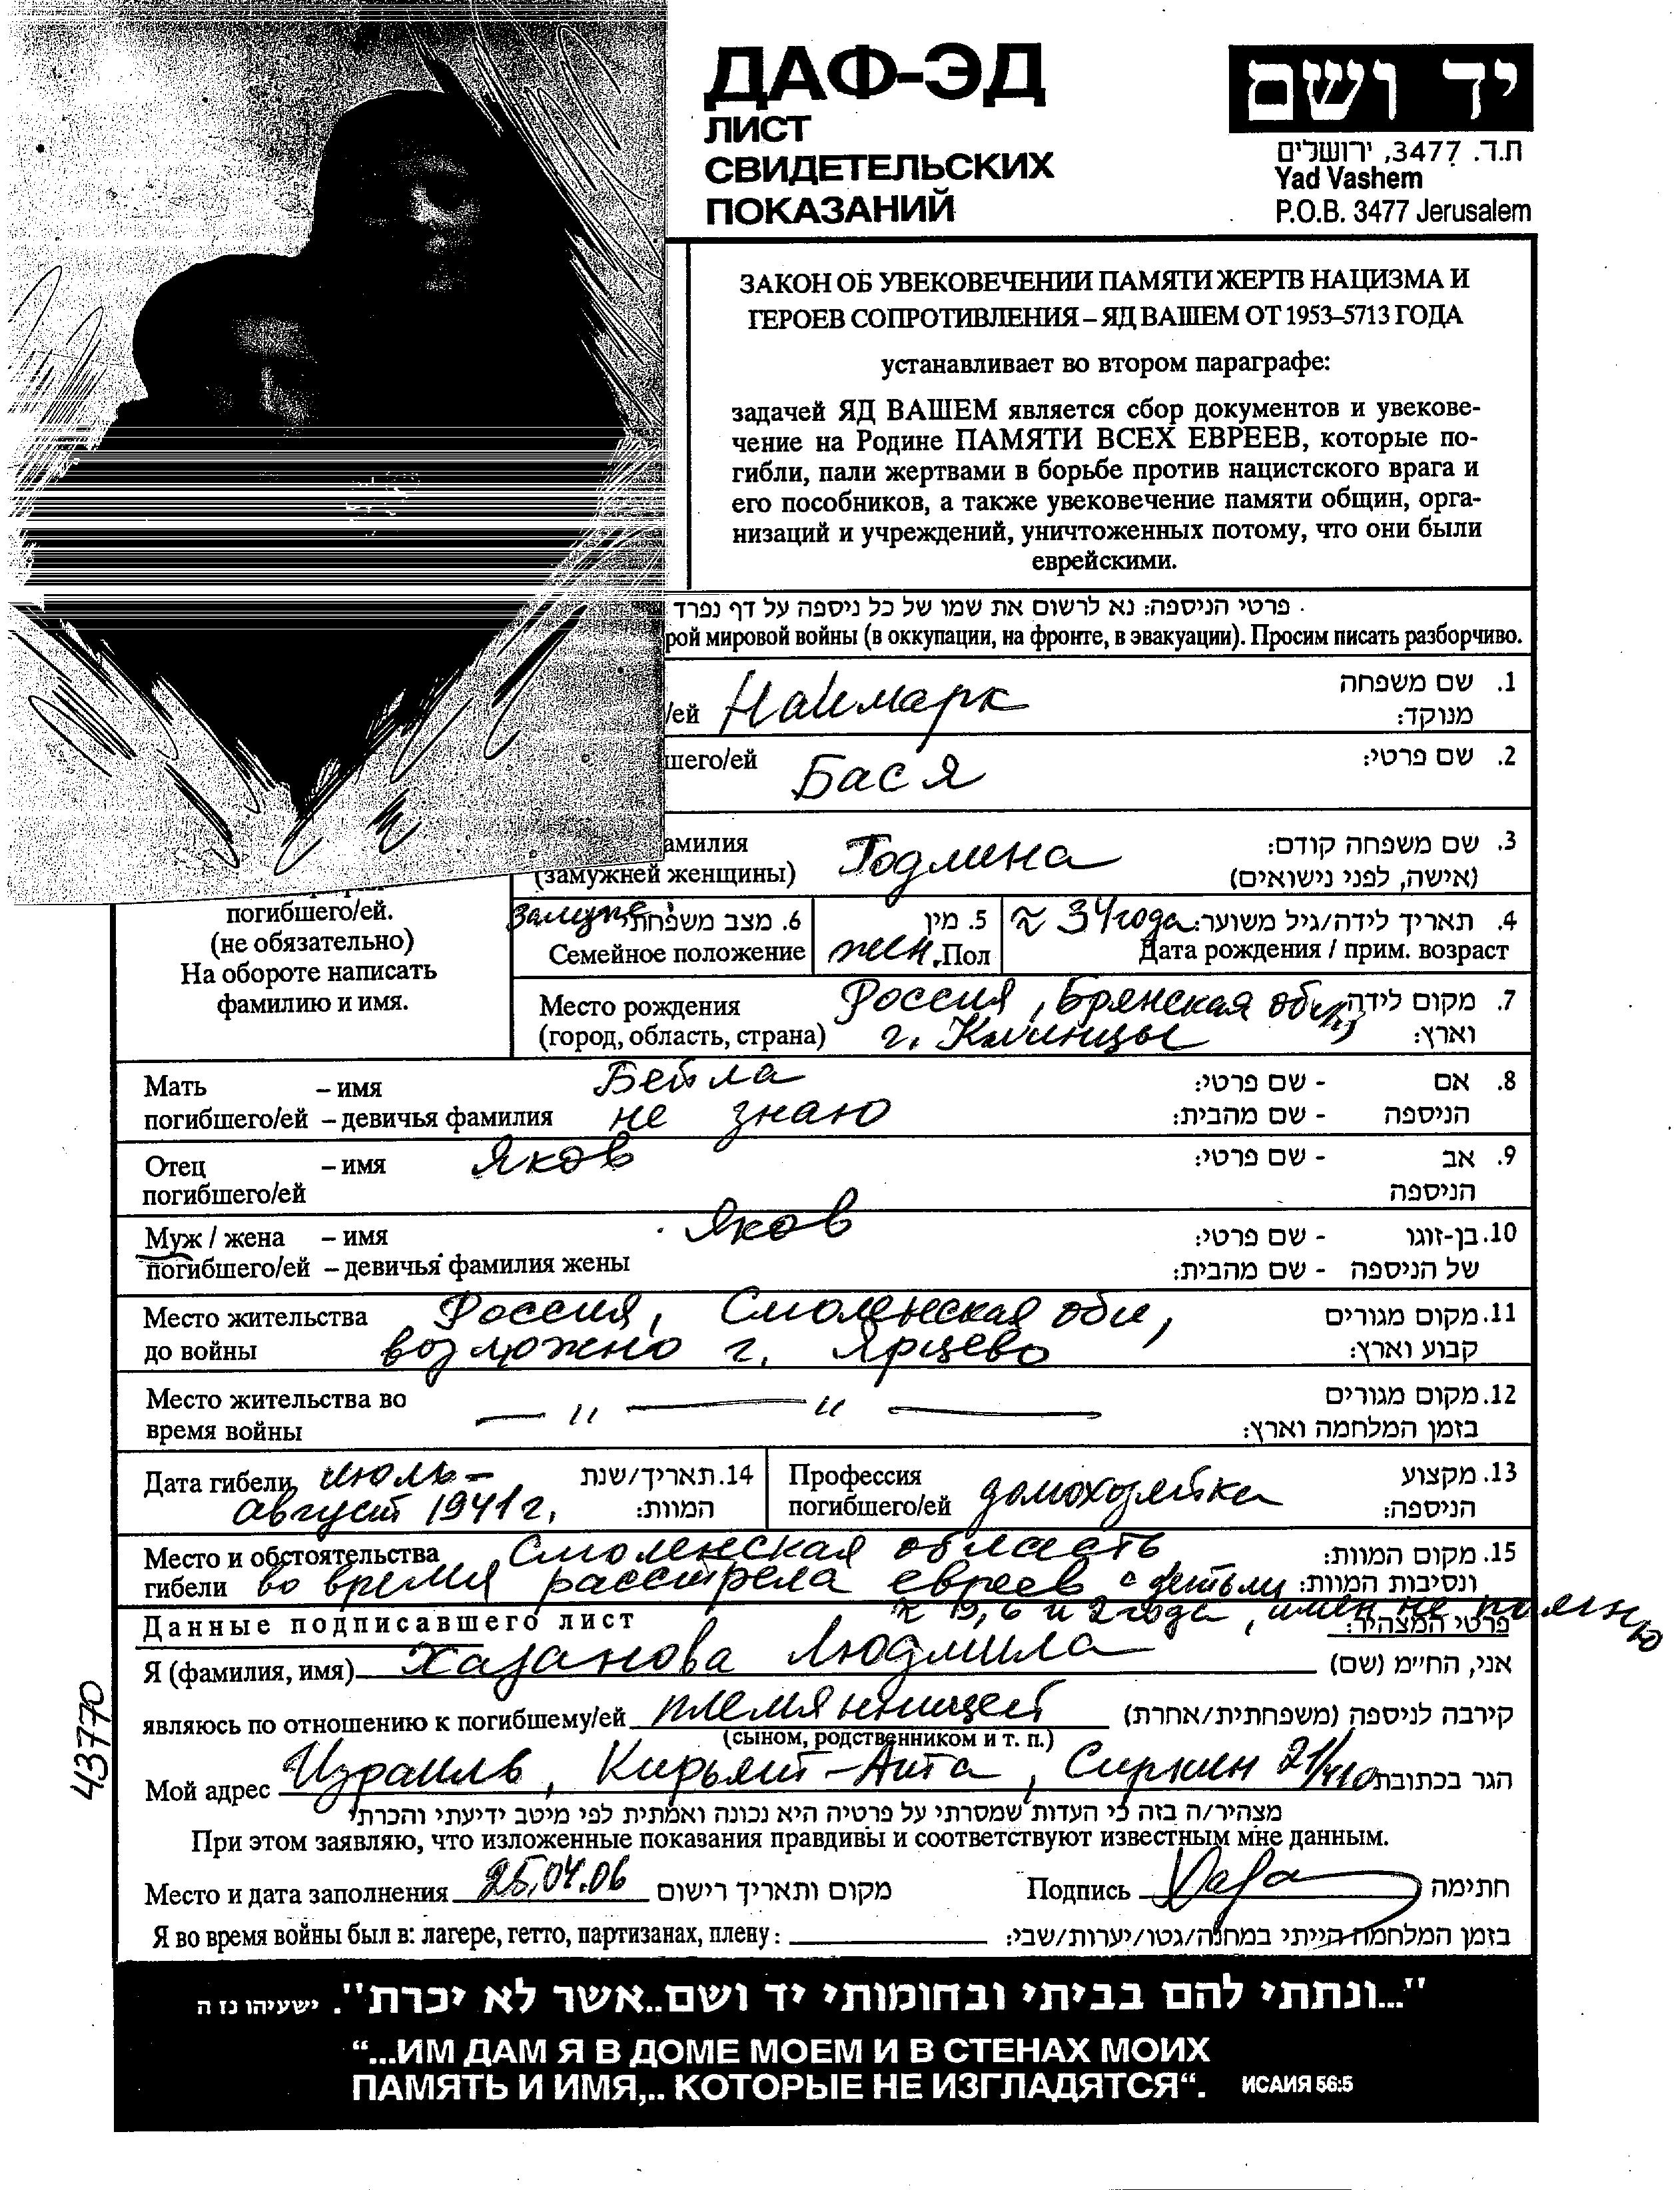 ДАФ-ЭД
ЛИСТ
СВИДЕТЕЛЬСКИХ
ПОКАЗАНИЙ
יד ושם
ת.ד. 3477, ירושלים
Yad Vashem
P.O.B. 3477 Jerusalem
ЗАКОН ОБ УВЕКОВЕЧЕНИИ ПАМЯТИ ЖЕРТВ НАЦИЗМА И
ГЕРОЕВ СОПРОТИВЛЕНИЯ – ЯД ВАШЕМ ОТ 1953–5713 ГОДА
устанавливает во втором параграфе:
задачей ЯД ВАШЕМ является сбор документов и увекове-
чение на Родине ПАМЯТИ ВСЕХ ЕВРЕЕВ, которые по-
гибли, пали жертвами в борьбе против нацистского врага и
его пособников, а также увековечение памяти общин, орга-
низаций и учреждений, уничтоженных потому, что они были
еврейскими.
פרטי הניספה: נא לרשום את שמו של כל ניספה על דף נפרד .
рой мировой войны (в оккупации, на фронте, в эвакуации). Просим писать разборчиво.
1. שם משפחה
/ей Наймарк
מנוקד:
2. שם פרטי:
шего/ей Бася
3. שם משפחה קודם:
амилия Годлина
(замужней женщины) (אישה, לפני נישואים)
погибшего/ей.
(не обязательно)
На обороте написать
фамилию и имя.
4. תאריך לידה/גיל משוער: ≈ 34 года
Дата рождения / прим. возраст
5. מין
жен. Пол
6. מצב משפחתי замужем
Семейное положение
7. מקום לידה
וארץ:
Место рождения Россия, Брянская обл,
(город, область, страна) г. Клинцы
Мать – имя Бейла 8. אם - שם פרטי:
погибшего/ей – девичья фамилия не знаю הניספה - שם מהבית:
Отец – имя Яков 9. אב - שם פרטי:
погибшего/ей הניספה
Муж / жена – имя Яков 10. בן-זוגו - שם פרטי:
погибшего/ей – девичья фамилия жены של הניספה - שם מהבית:
Место жительства Россия, Смоленская обл, 11. מקום מגורים
до войны возможно г. Ярцево קבוע וארץ:
Место жительства во — " — " — 12. מקום מגורים
время войны בזמן המלחמה וארץ:
Дата гибели июль – 14. תאריך/שנת
август 1941 г. המוות:
Профессия 13. מקצוע
погибшего/ей домохозяйка הניספה:
Место и обстоятельства Смоленская область 15. מקום המוות:
гибели во время расстрела евреев с детьми ונסיבות המוות:
6 и 2 года, имен не помню
Данные подписавшего лист פרטי המצהיר:
Я (фамилия, имя) Хазанова Людмила אני, החי״מ (שם)
являюсь по отношению к погибшему/ей племянницей קירבה לניספה (משפחתית/אחרת)
(сыном, родственником и т. п.)
Мой адрес Израиль, Кирьят-Ата, Сиркин הגר בכתובת
מצהיר/ה בזה כי העדות שמסרתי על פרטיה היא נכונה ואמתית לפי מיטב ידיעתי והכרתי
При этом заявляю, что изложенные показания правдивы и соответствуют известным мне данным.
Место и дата заполнения 25.04.06 מקום ותאריך רישום Подпись חתימה
Я во время войны был в: лагере, гетто, партизанах, плену: בזמן המלחמה הייתי במחנה/גטו/יערות/שבי:
43770
"...ונתתי להם בביתי ובחומותי יד ושם..אשר לא יכרת". ישעיהו נו ה
“...ИМ ДАМ Я В ДОМЕ МОЕМ И В СТЕНАХ МОИХ
ПАМЯТЬ И ИМЯ,.. КОТОРЫЕ НЕ ИЗГЛАДЯТСЯ“. ИСАИЯ 56:5